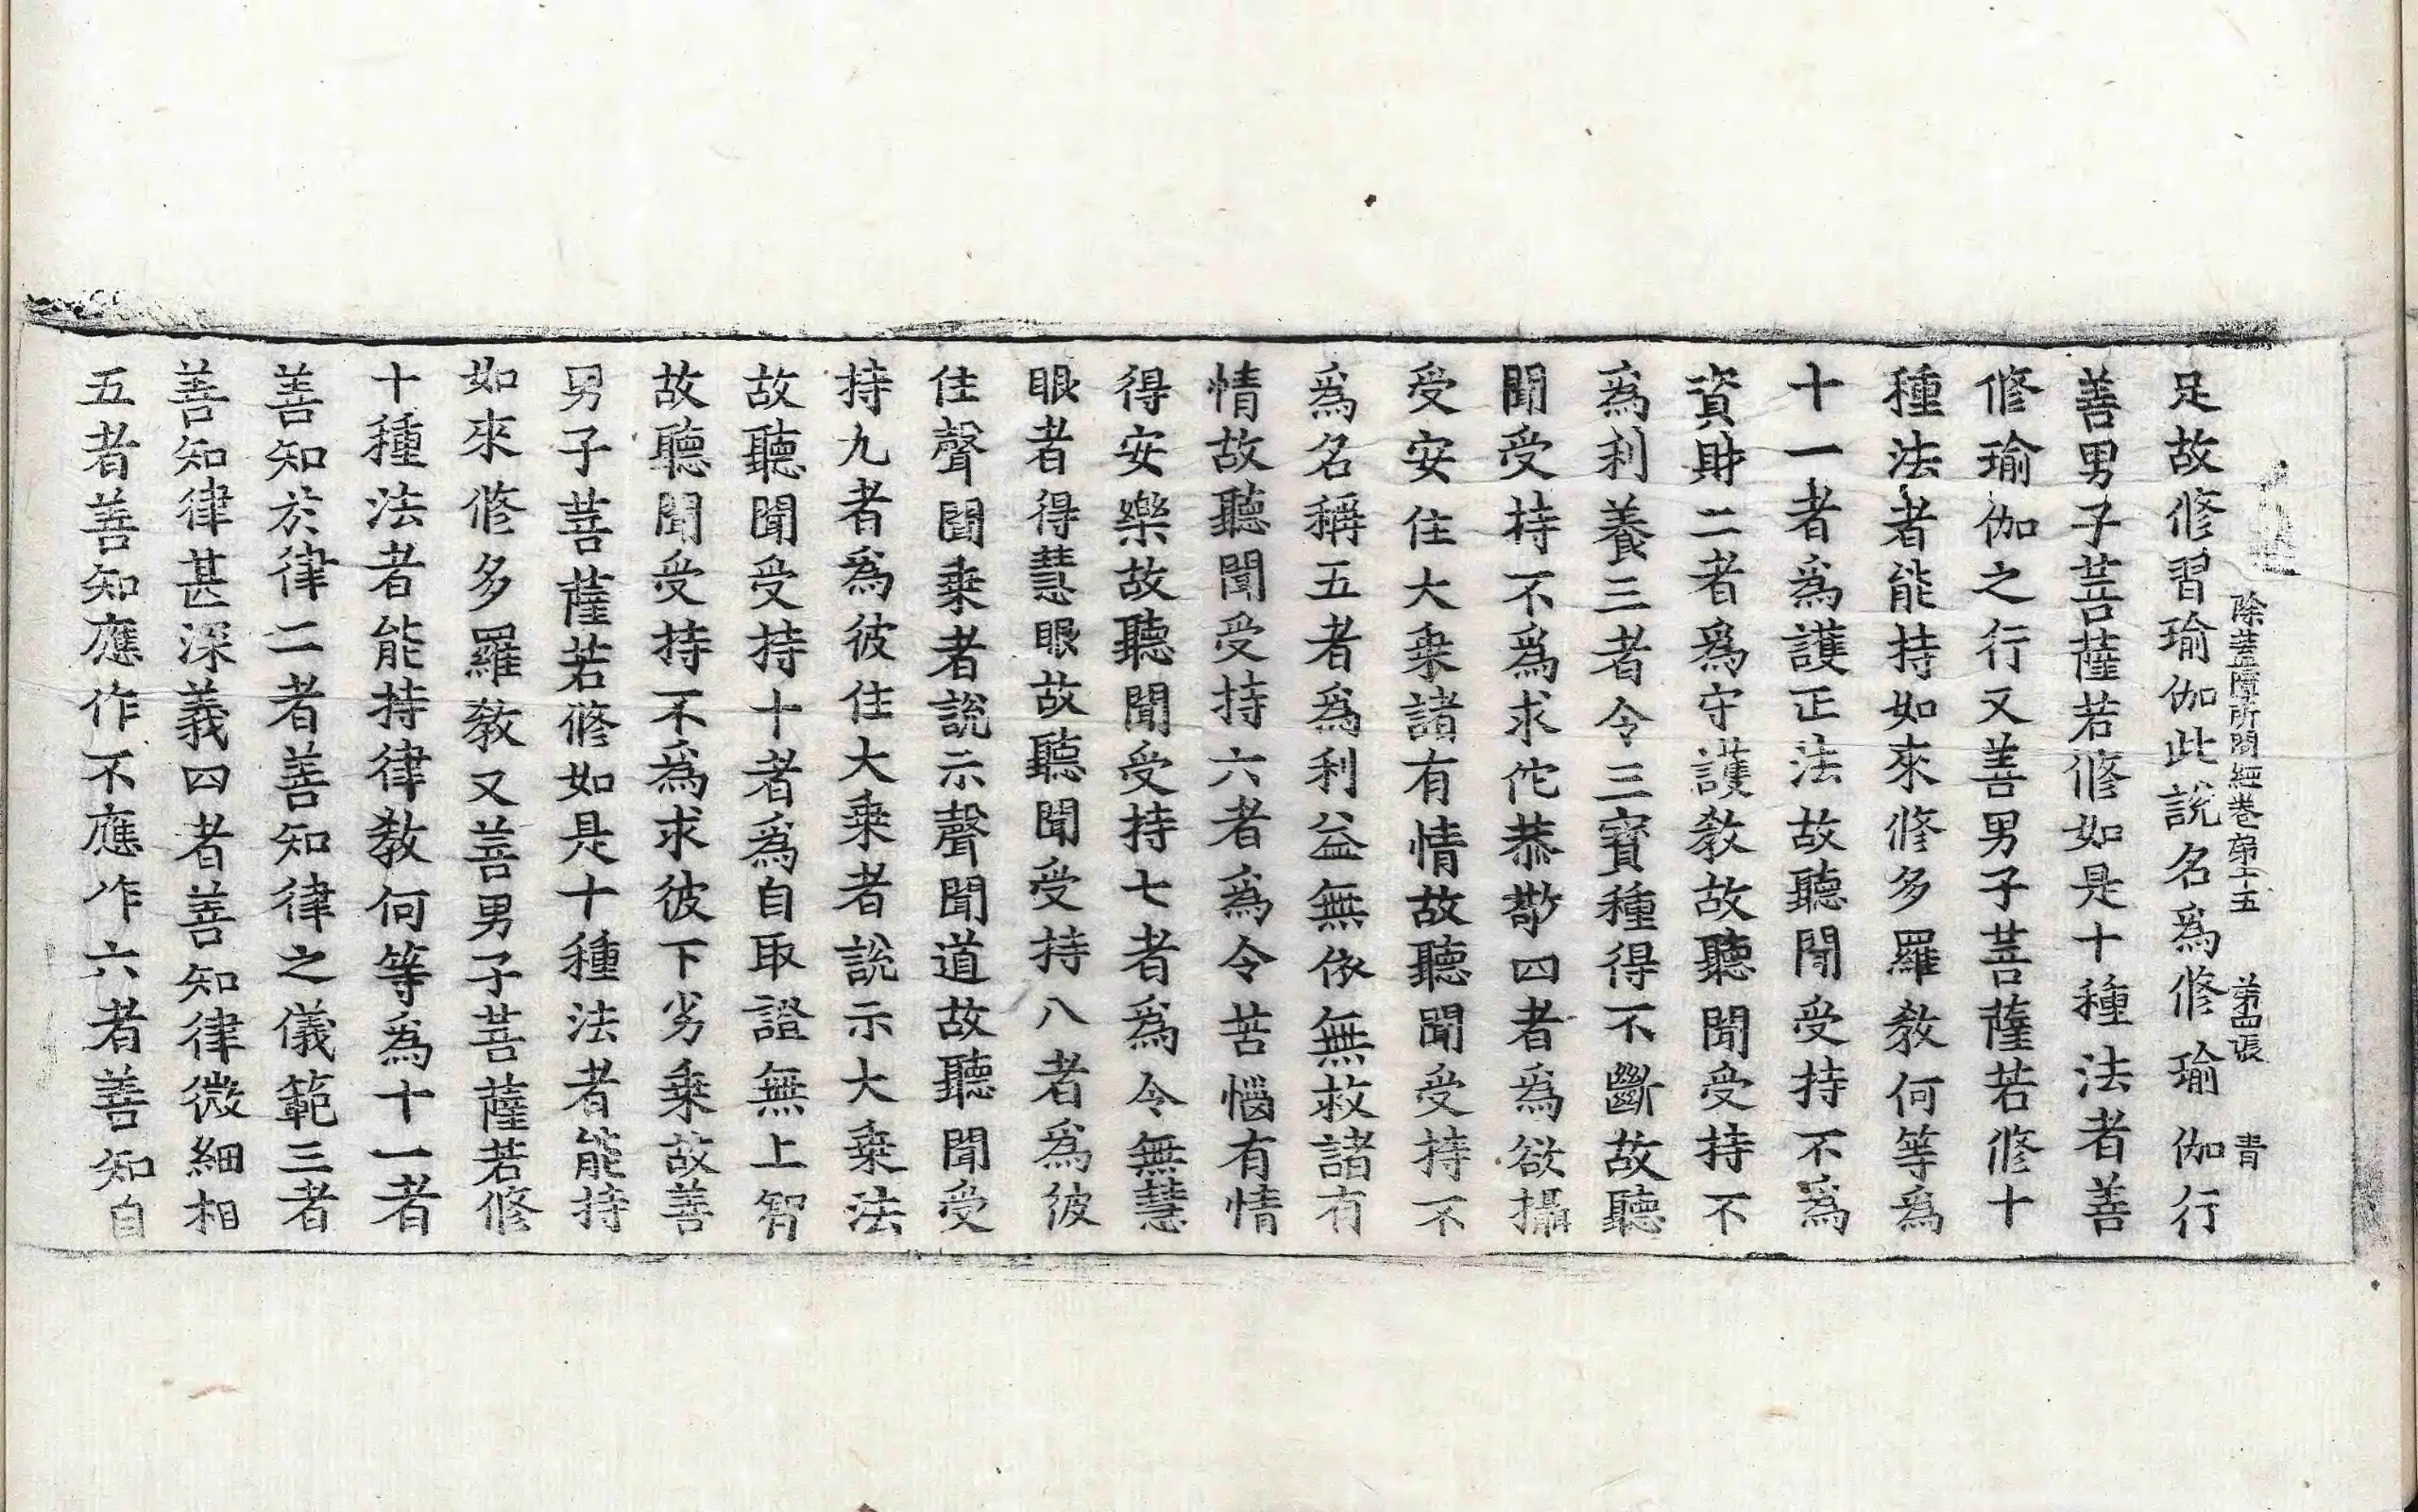 除蓋障所問經卷第十五 第四張 青
足故修習瑜伽此說名爲修瑜伽行
善男子菩薩若修如是十種法者善
修瑜伽之行又善男子菩薩若修十
種法者能持如來修多羅教何等爲
十一者爲護正法故聽聞受持不爲
資財二者爲守護教故聽聞受持不
爲利養三者令三寶種得不斷故聽
聞受持不爲求佗恭敬四者爲欲攝
受安住大乘諸有情故聽聞受持不
爲名稱五者爲利益無依無救諸有
情故聽聞受持六者爲令苦惱有情
得安樂故聽聞受持七者爲令無慧
眼者得慧眼故聽聞受持八者爲彼
住聲聞乘者說示聲聞道故聽聞受
持九者爲彼住大乘者說示大乘法
故聽聞受持十者爲自取證無上智
故聽聞受持不爲求彼下劣乘故善
男子菩薩若修如是十種法者能持
如來修多羅教又善男子菩薩若修
十種法者能持律教何等爲十一者
善知於律二者善知律之儀範三者
善知律甚深義四者善知律微細相
五者善知應作不應作六者善知自